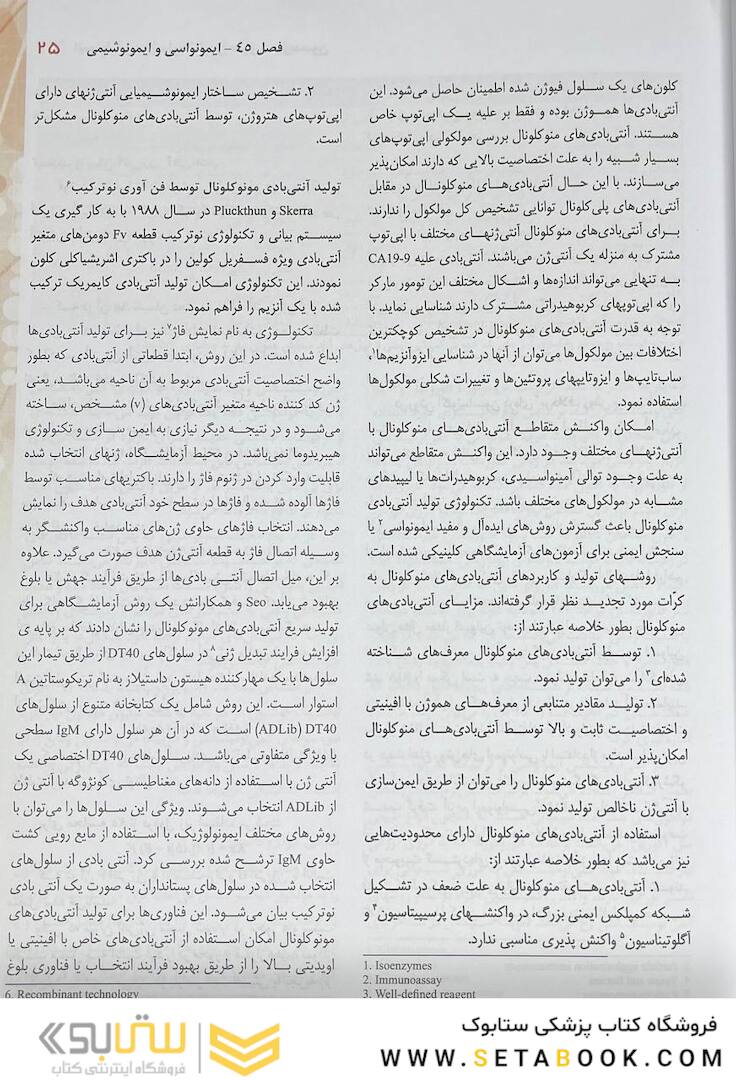 فصل ٤٥ - ایمونواسی و ایمونوشیمی
۲۵
کلون‌های یک سلول فیوژن شده اطمینان حاصل می‌شود. این
آنتی‌بادی‌ها هموژن بوده و فقط بر علیه یک اپی‌توپ خاص
هستند. آنتی‌بادی‌های منوکلونال بررسی مولکولی اپی‌توپ‌های
بسیار شبیه را به علت اختصاصیت بالایی که دارند امکان‌پذیر
می‌سازند. با این حال آنتی‌بادی‌های منوکلونال در مقابل
آنتی‌بادی‌های پلی‌کلونال توانایی تشخیص کل مولکول را ندارند.
برای آنتی‌بادی‌های منوکلونال آنتی‌ژنهای مختلف با اپی‌توپ
مشترک به منزله یک آنتی‌ژن می‌باشند. آنتی‌بادی علیه CA19-9
به تنهایی می‌تواند اندازه‌ها و اشکال مختلف این تومور مارکر
را که اپی‌توپهای کربوهیدراتی مشترک دارند شناسایی نماید. با
توجه به قدرت آنتی‌بادی‌های منوکلونال در تشخیص کوچکترین
اختلافات بین مولکول‌ها می‌توان از آنها در شناسایی ایزوآنزیم‌ها۱،
ساب‌تایپ‌ها و ایزوتایپهای پروتئین‌ها و تغییرات شکلی مولکول‌ها
استفاده نمود.
امکان واکنش متقاطع آنتی‌بادی‌های منوکلونال با
آنتی‌ژنهای مختلف وجود دارد. این واکنش متقاطع می‌تواند
به علت وجود توالی آمینواسیدی، کربوهیدرات‌ها یا لیپیدهای
مشابه در مولکول‌های مختلف باشد. تکنولوژی تولید آنتی‌بادی
منوکلونال باعث گسترش روش‌های ایده‌آل و مفید ایمونواسی۲ یا
سنجش ایمنی برای آزمون‌های آزمایشگاهی کلینیکی شده است.
روشهای تولید و کاربردهای آنتی‌بادی‌های منوکلونال به
کرّات مورد تجدید نظر قرار گرفته‌اند. مزایای آنتی‌بادی‌های
منوکلونال بطور خلاصه عبارتند از:
۱. توسط آنتی‌بادی‌های منوکلونال معرف‌های شناخته
شده‌ای۳ را می‌توان تولید نمود.
۲. تولید مقادیر متنابعی از معرف‌های هموژن با افینیتی
و اختصاصیت ثابت و بالا توسط آنتی‌بادی‌های منوکلونال
امکان‌پذیر است.
۳. آنتی‌بادی‌های منوکلونال را می‌توان از طریق ایمن‌سازی
با آنتی‌ژن ناخالص تولید نمود.
استفاده از آنتی‌بادی‌های منوکلونال دارای محدودیت‌هایی
نیز می‌باشد که بطور خلاصه عبارتند از:
۱. آنتی‌بادی‌های منوکلونال به علت ضعف در تشکیل
شبکه کمپلکس ایمنی بزرگ، در واکنشهای پرسیپیتاسیون۴ و
آگلوتیناسیون۵ واکنش پذیری مناسبی ندارد.
1. Isoenzymes
2. Immunoassay
3. Well-defined reagent
۲. تشخیص ساختار ایمونوشیمیایی آنتی‌ژنهای دارای
اپی‌توپ‌های هتروژن، توسط آنتی‌بادی‌های منوکلونال مشکل‌تر
است.
تولید آنتی‌بادی مونوکلونال توسط فن آوری نوترکیب۶
Skerra و Pluckthun در سال ۱۹۸۸ با به کار گیری یک
سیستم بیانی و تکنولوژی نوترکیب قطعه Fv دومن‌های متغیر
آنتی‌بادی ویژه فسفریل کولین را در باکتری اشریشیاکلی کلون
نمودند. این تکنولوژی امکان تولید آنتی‌بادی کایمریک ترکیب
شده با یک آنزیم را فراهم نمود.
تکنولوژی به نام نمایش فاژ۷ نیز برای تولید آنتی‌بادی‌ها
ابداع شده است. در این روش، ابتدا قطعاتی از آنتی‌بادی که بطور
واضح اختصاصیت آنتی‌بادی مربوط به آن ناحیه می‌باشد، یعنی
ژن کد کننده ناحیه متغیر آنتی‌بادی‌های (v) مشخص، ساخته
می‌شود و در نتیجه دیگر نیازی به ایمن سازی و تکنولوژی
هیبریدوما نمی‌باشد. در محیط آزمایشگاه، ژنهای انتخاب شده
قابلیت وارد کردن در ژنوم فاژ را دارند. باکتریهای مناسب توسط
فاژها آلوده شده و فاژها در سطح خود آنتی‌بادی هدف را نمایش
می‌دهند. انتخاب فاژهای حاوی ژن‌های مناسب واکنشگر به
وسیله اتصال فاژ به قطعه آنتی‌ژن هدف صورت می‌گیرد. علاوه
بر این، میل اتصال آنتی بادی‌ها از طریق فرآیند جهش یا بلوغ
بهبود می‌یابد. Seo و همکارانش یک روش آزمایشگاهی برای
تولید سریع آنتی‌بادی‌های مونوکلونال را نشان دادند که بر پایه ی
افزایش فرایند تبدیل ژنی۸ در سلول‌های DT40 از طریق تیمار این
سلول‌ها با یک مهارکننده هیستون داستیلاز به نام تریکوستاتین A
استوار است. این روش شامل یک کتابخانه متنوع از سلول‌های
DT40 (ADLib) است که در آن هر سلول دارای IgM سطحی
با ویژگی متفاوتی می‌باشد. سلول‌های DT40 اختصاصی یک
آنتی ژن با استفاده از دانه‌های مغناطیسی کونژوگه با آنتی ژن
از ADLib انتخاب می‌شوند. ویژگی این سلول‌ها را می‌توان با
روش‌های مختلف ایمونولوژیک، با استفاده از مایع رویی کشت
حاوی IgM ترشح شده بررسی کرد. آنتی بادی از سلول‌های
انتخاب شده در سلول‌های پستانداران به صورت یک آنتی بادی
نوترکیب بیان می‌شود. این فناوری‌ها برای تولید آنتی‌بادی‌های
مونوکلونال امکان استفاده از آنتی‌بادی‌های خاص با افینیتی یا
اویدیتی بالا را از طریق بهبود فرآیند انتخاب یا فناوری بلوغ
6. Recombinant technology
فروشگاه کتاب پزشکی ستابوک
WWW.SETABOOK.COM
ستابوک
فروشگاه اینترنتی کتاب